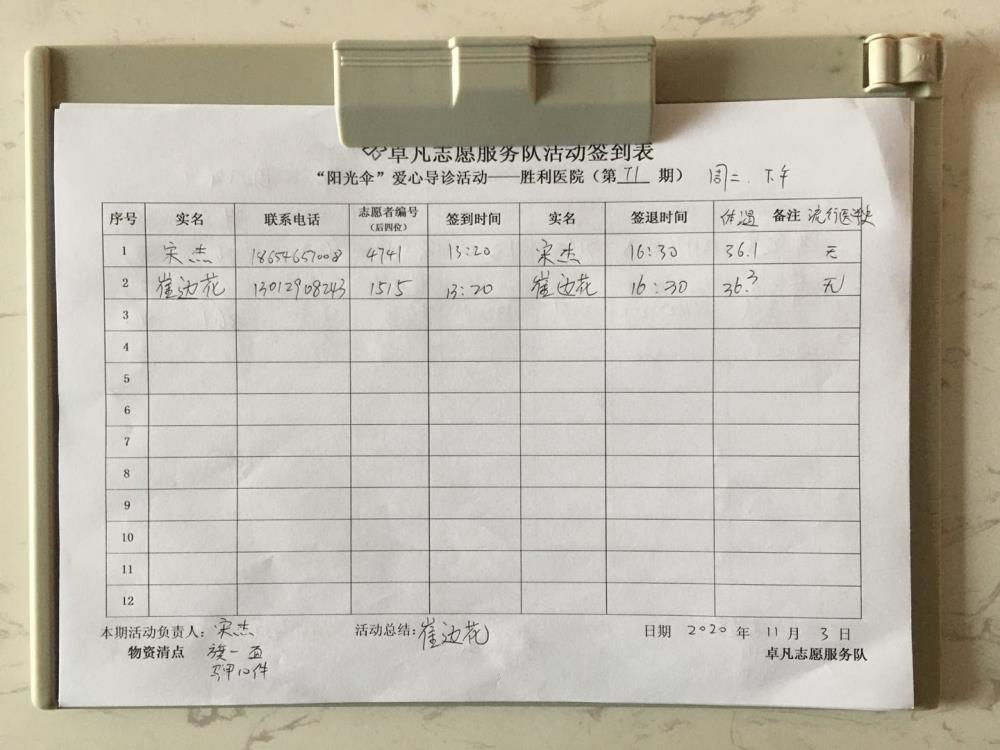 卓凡志愿服务队活动签到表
“阳光伞”爱心导诊活动——胜利医院（第71期） 周二.下午
序号 实名 联系电话 志愿者编号（后四位） 签到时间 实名 签退时间 体温 备注 流行医学史
1 宋杰 18654657008 4741 13:20 宋杰 16:30 36.1 无
2 崔边花 13012908243 1515 13:20 崔边花 16:30 36.3 无
3
4
5
6
7
8
9
10
11
12
本期活动负责人：宋杰 活动总结：崔边花 日期 2020年11月3日
物资清点 旗一面 卓凡志愿服务队
马甲10件